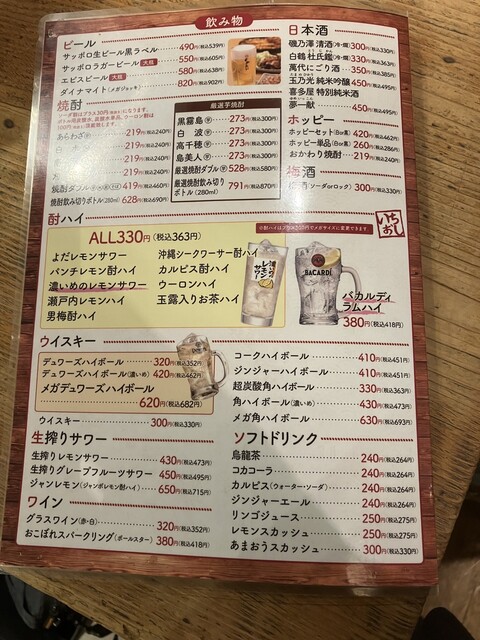 飲み物
ビール
サッポロ生ビール黒ラベル 490円(税込539円)
サッポロラガービール 大瓶 550円(税込605円)
エビスビール 大瓶 580円(税込638円)
ダイナマイト(メガジョッキ) 820円(税込902円)
焼酎
ソーダ割はプラス30円(税抜き)になります。
100円(税込)頂戴します。
あらわざ 219円(税込240円)
219円(税込240円)
219円(税込240円)
219円(税込240円)
焼酎ダブル 419円(税込460円)
焼酎飲み切りボトル(280ml) 628円(税込690円)
厳選芋焼酎
黒霧島 芋 273円(税込300円)
白波 芋 273円(税込300円)
高千穂 273円(税込300円)
島美人 芋 273円(税込300円)
厳選焼酎ダブル 芋 528円(税込580円)
厳選焼酎飲み切りボトル(280ml) 791円(税込870円)
日本酒
磯乃澤 清酒(冷・燗) 300円(税込330円)
白鶴 杜氏鑑(冷・燗) 330円(税込363円)
萬代にごり酒 350円(税込385円)
玉乃光 純米吟醸 450円(税込495円)
喜多屋 特別純米酒
夢一献 450円(税込495円)
ホッピー
ホッピーセット(白or黒) 420円(税込462円)
ホッピー単品(白or黒) 260円(税込286円)
おかわり焼酎 219円(税込240円)
梅酒
梅酒(ソーダorロック) 300円(税込330円)
酎ハイ
ALL330円(税込363円)
よだレモンサワー
パンチレモン酎ハイ
濃いめのレモンサワー
瀬戸内レモンハイ
男梅酎ハイ
沖縄シークワーサー酎ハイ
カルピス酎ハイ
ウーロンハイ
玉露入りお茶ハイ
いちおし
濃いめのレモンサワー
BACARDÍ
バカルディ
ラムハイ
380円(税込418円)
ウイスキー
デュワーズハイボール 320円(税込352円)
デュワーズハイボール(濃いめ) 420円(税込462円)
メガデュワーズハイボール
620円(税込682円)
ウイスキー 300円(税込330円)
コークハイボール 410円(税込451円)
ジンジャーハイボール 410円(税込451円)
超炭酸角ハイボール 330円(税込363円)
角ハイボール(濃いめ) 430円(税込473円)
メガ角ハイボール 630円(税込693円)
生搾りサワー
生搾りレモンサワー 430円(税込473円)
生搾りグレープフルーツサワー 450円(税込495円)
ジャンレモン(ジャンボレモン酎ハイ) 650円(税込715円)
ワイン
グラスワイン(赤・白) 320円(税込352円)
おこぼれスパークリング(ポールスター) 380円(税込418円)
ソフトドリンク
烏龍茶 240円(税込264円)
コカコーラ 240円(税込264円)
カルピス(ウォーター・ソーダ) 240円(税込264円)
ジンジャーエール 240円(税込264円)
リンゴジュース 250円(税込275円)
レモンスカッシュ 250円(税込275円)
あまおうスカッシュ 300円(税込330円)